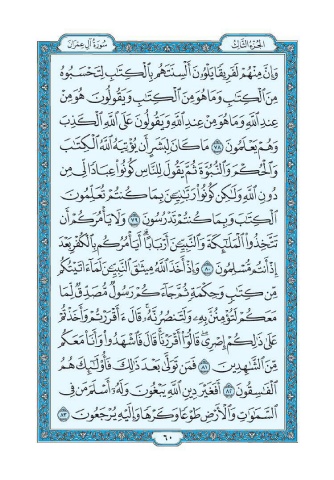 الجزء الثالث
سورة آل عمران
وَإِنَّ مِنْهُمْ لَفَرِيقًا يَلْوُۥنَ أَلْسِنَتَهُم بِٱلْكِتَٰبِ لِتَحْسَبُوهُ
مِنَ ٱلْكِتَٰبِ وَمَا هُوَ مِنَ ٱلْكِتَٰبِ وَيَقُولُونَ هُوَ مِنْ
عِندِ ٱللَّهِ وَمَا هُوَ مِنْ عِندِ ٱللَّهِ وَيَقُولُونَ عَلَى ٱللَّهِ ٱلْكَذِبَ
وَهُمْ يَعْلَمُونَ ٧٨ مَا كَانَ لِبَشَرٍ أَن يُؤْتِيَهُ ٱللَّهُ ٱلْكِتَٰبَ
وَٱلْحُكْمَ وَٱلنُّبُوَّةَ ثُمَّ يَقُولَ لِلنَّاسِ كُونُوا۟ عِبَادًا لِّى مِن
دُونِ ٱللَّهِ وَلَٰكِن كُونُوا۟ رَبَّٰنِيِّۦنَ بِمَا كُنتُمْ تُعَلِّمُونَ
ٱلْكِتَٰبَ وَبِمَا كُنتُمْ تَدْرُسُونَ ٧٩ وَلَا يَأْمُرَكُمْ أَن
تَتَّخِذُوا۟ ٱلْمَلَٰٓئِكَةَ وَٱلنَّبِيِّۦنَ أَرْبَابًا أَيَأْمُرُكُم بِٱلْكُفْرِ بَعْدَ
إِذْ أَنتُم مُّسْلِمُونَ ٨٠ وَإِذْ أَخَذَ ٱللَّهُ مِيثَٰقَ ٱلنَّبِيِّۦنَ لَمَآ ءَاتَيْتُكُم
مِّن كِتَٰبٍ وَحِكْمَةٍ ثُمَّ جَآءَكُمْ رَسُولٌ مُّصَدِّقٌ لِّمَا
مَعَكُمْ لَتُؤْمِنُنَّ بِهِۦ وَلَتَنصُرُنَّهُۥ قَالَ ءَأَقْرَرْتُمْ وَأَخَذْتُمْ
عَلَىٰ ذَٰلِكُمْ إِصْرِى قَالُوٓا۟ أَقْرَرْنَا قَالَ فَٱشْهَدُوا۟ وَأَنَا۠ مَعَكُم
مِّنَ ٱلشَّٰهِدِينَ ٨١ فَمَن تَوَلَّىٰ بَعْدَ ذَٰلِكَ فَأُو۟لَٰٓئِكَ هُمُ
ٱلْفَٰسِقُونَ ٨٢ أَفَغَيْرَ دِينِ ٱللَّهِ يَبْغُونَ وَلَهُۥٓ أَسْلَمَ مَن فِى
ٱلسَّمَٰوَٰتِ وَٱلْأَرْضِ طَوْعًا وَكَرْهًا وَإِلَيْهِ يُرْجَعُونَ ٨٣
٦٠